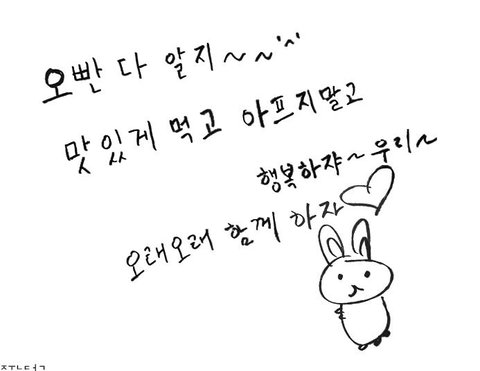 오빤 다 알지~~^^
맛있게 먹고 아프지말고
행복하쟈~우리~
오래오래 함께 하자♡